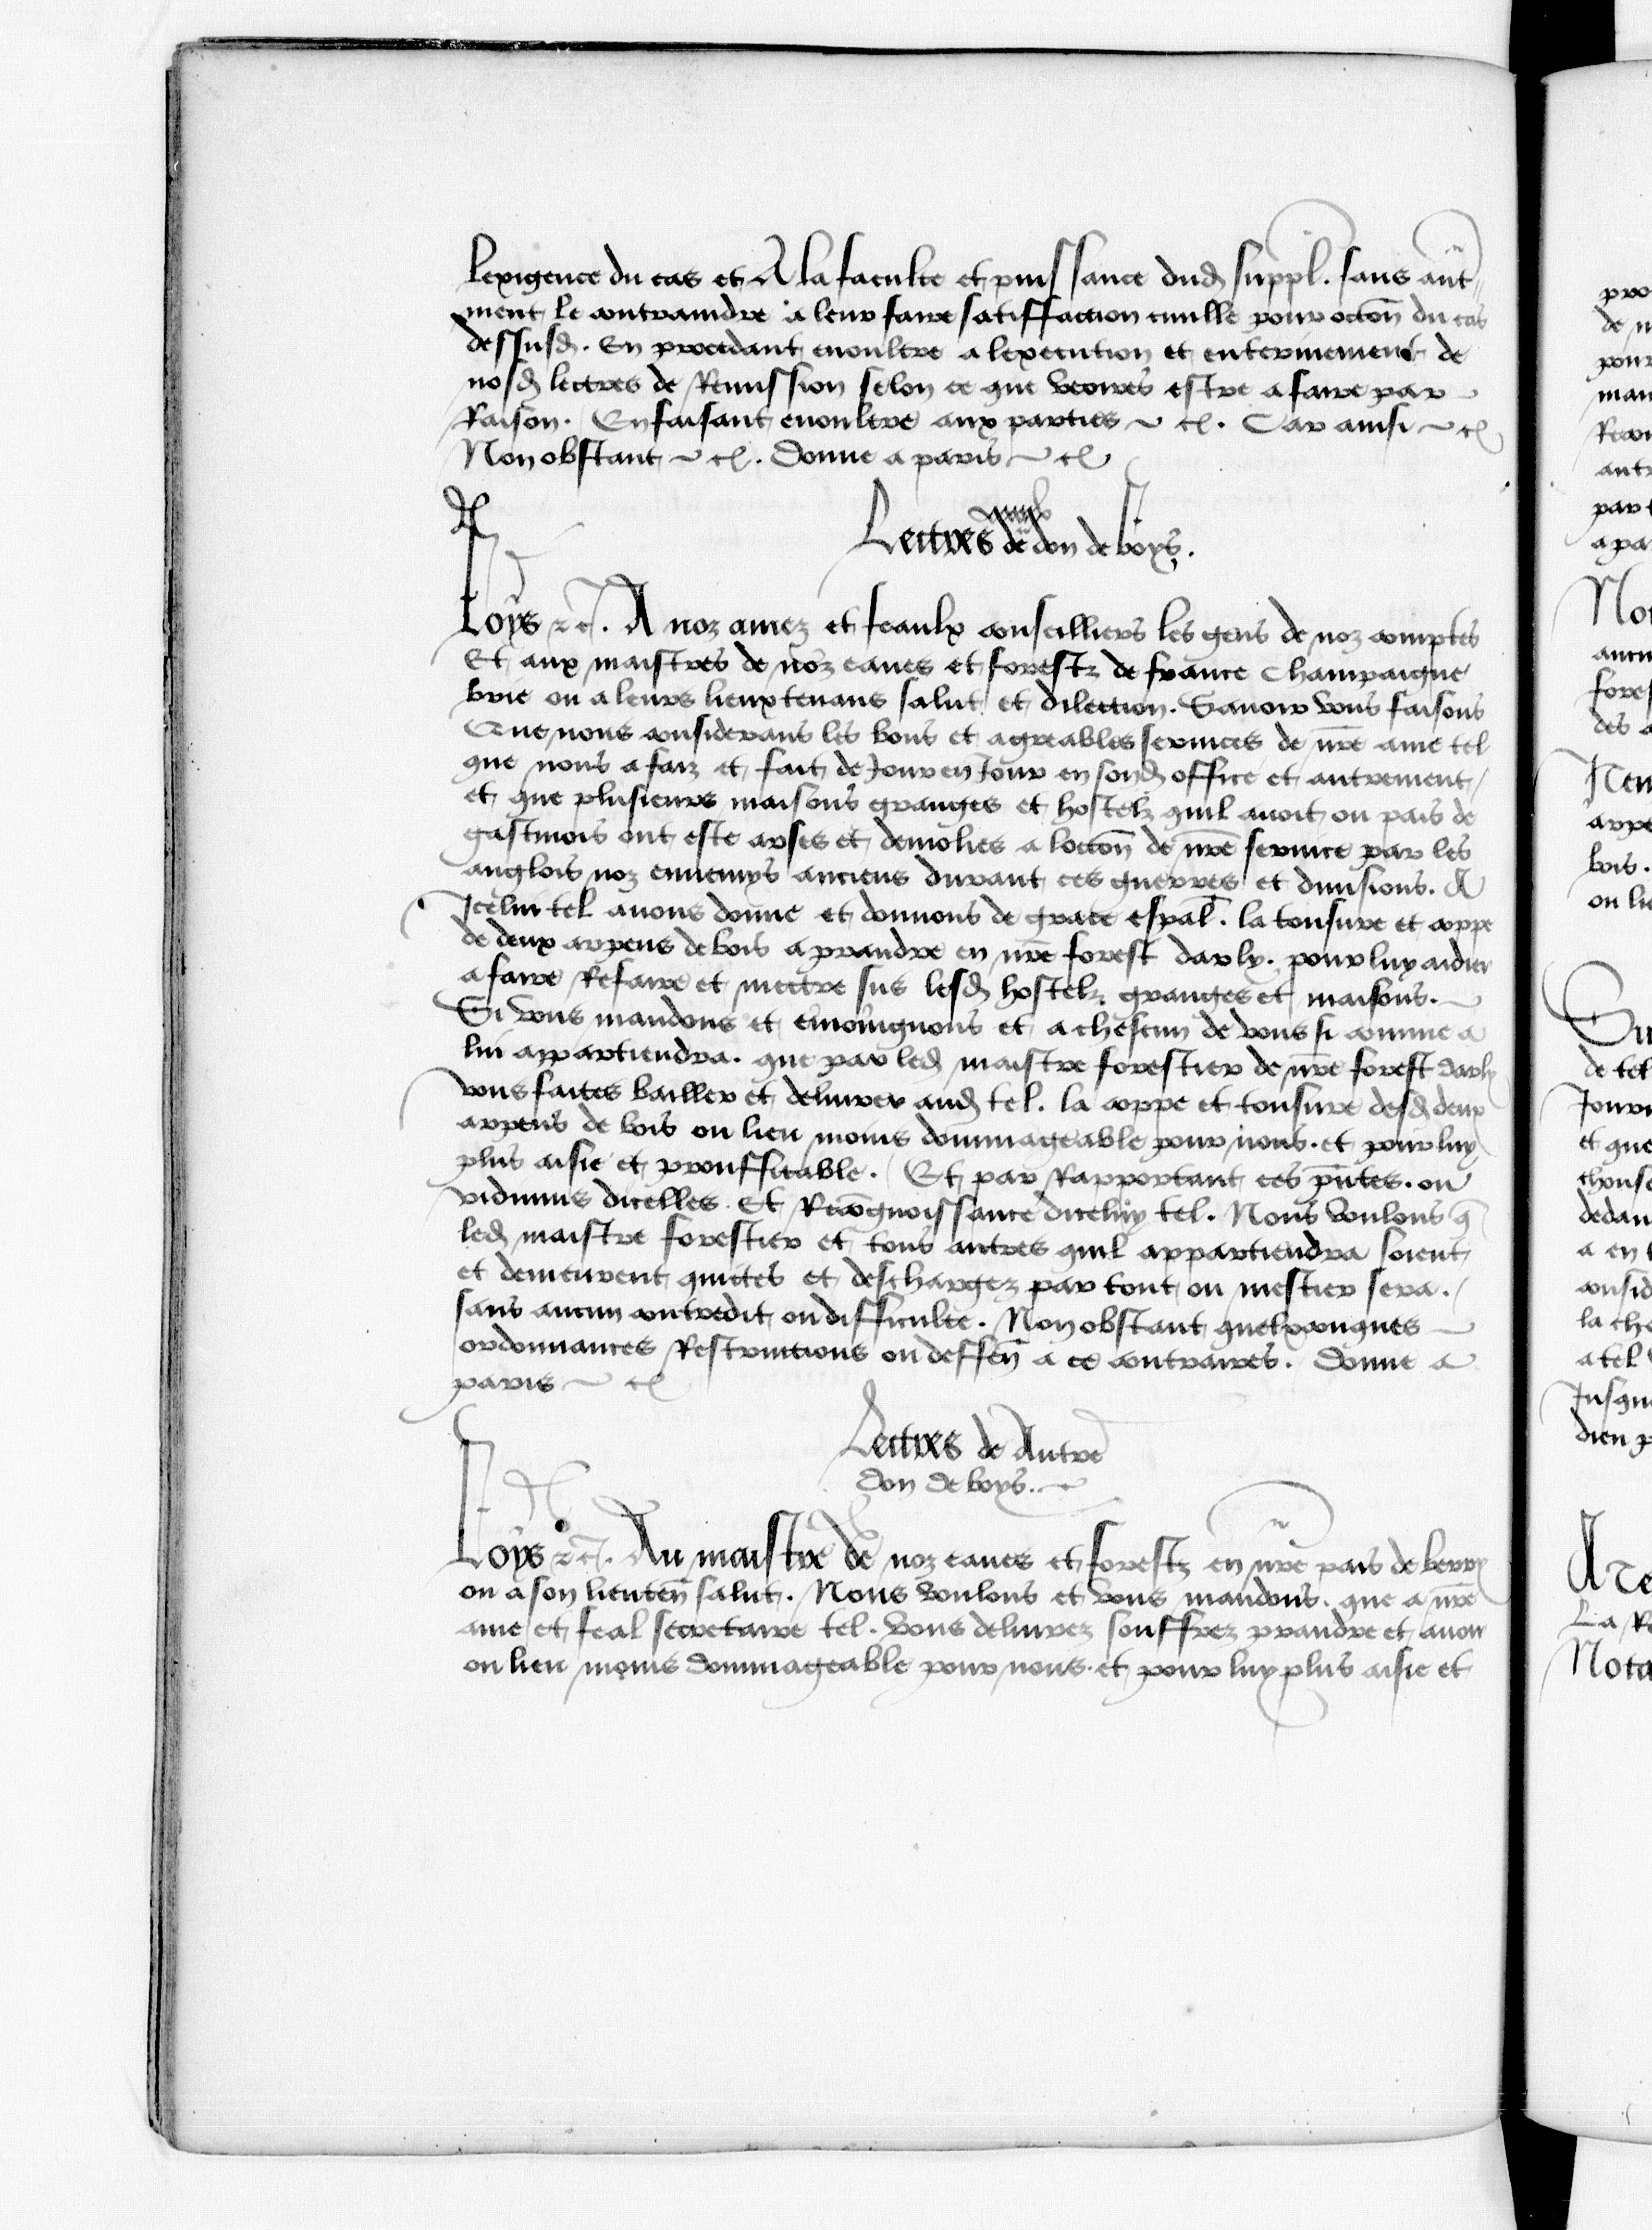 lexigence du cas et A la faculte et puissance dud suppl. sans aut
ment le contraindre a leur faire satiffaction ciuille pour occon du cas
dessusd. En procedant enoultre a lexecution et enterinement de
nosd lectres de Remission selon ce que verres estre a faire par
Raison. En faisant enoultre aux parties etc. Car ainsi etc
Non obstant etc. Donne a paris etc
Lectres de don de boys.
Loys etc. A noz amez et feaulx conseilliers les gens de noz comptes
Et aux maistres de noz eaues et forestz de france Champaigne
brie ou a leurs lieuxtenans salut et dilection. Sauoir vous faisons
Que nous considerans les bons et agreables seruices de nre ame tel
que nous a faiz et fait de Jour en Jour en sond office et autrement
et que plusieurs maisons granges et hostelz quil auoit ou pais de
gastinois ont este arses et demolies a loccon de nre seruice par les
anglois noz ennemys anciens durant ces guerres et diuisions. A
Icelui tel auons donne et donnons de grace espal. la tonsure et coppe
de deux arpens de bois a prandre en nre forest darly. pour luy aidier
a faire Refaire et mectre sus lesd hostelz granges et maisons.
Si vous mandons et enioingnons et a chescun de vous si comme a
lui appartiendra. que par led maistre forestier de nre forest darly
vous faites bailler et deliurer aud tel. la coppe et tonsure desd deux
arpens de bois ou lieu moins dommageable pour nous. et pour luy
plus aisie et prouffitable. Et par Rapportant ces pntes. ou
vidimus dicelles Et Recognoissance diceluy tel. Nous voulons q
led maistre forestier et tous autres quil appartiendra soient
et demeurent quictes et deschargez par tout ou mestier sera.
sans aucun contredit ou difficulte. Non obstant quelxconques
ordonnances Restrinctions ou deffen a ce contraires. Donne a
paris etc
Lectres de Autre
don de boys.
Loys etc. Au maistre de noz eaues et forestz en nre pais de berry
ou a son lieuten salut. Nous voulons et vous mandons. que a nre
ame et feal secretaire tel. vous deliurez souffrez prandre et auoir
ou lieu moins dommageable pour nous. et pour luy plus aisie et